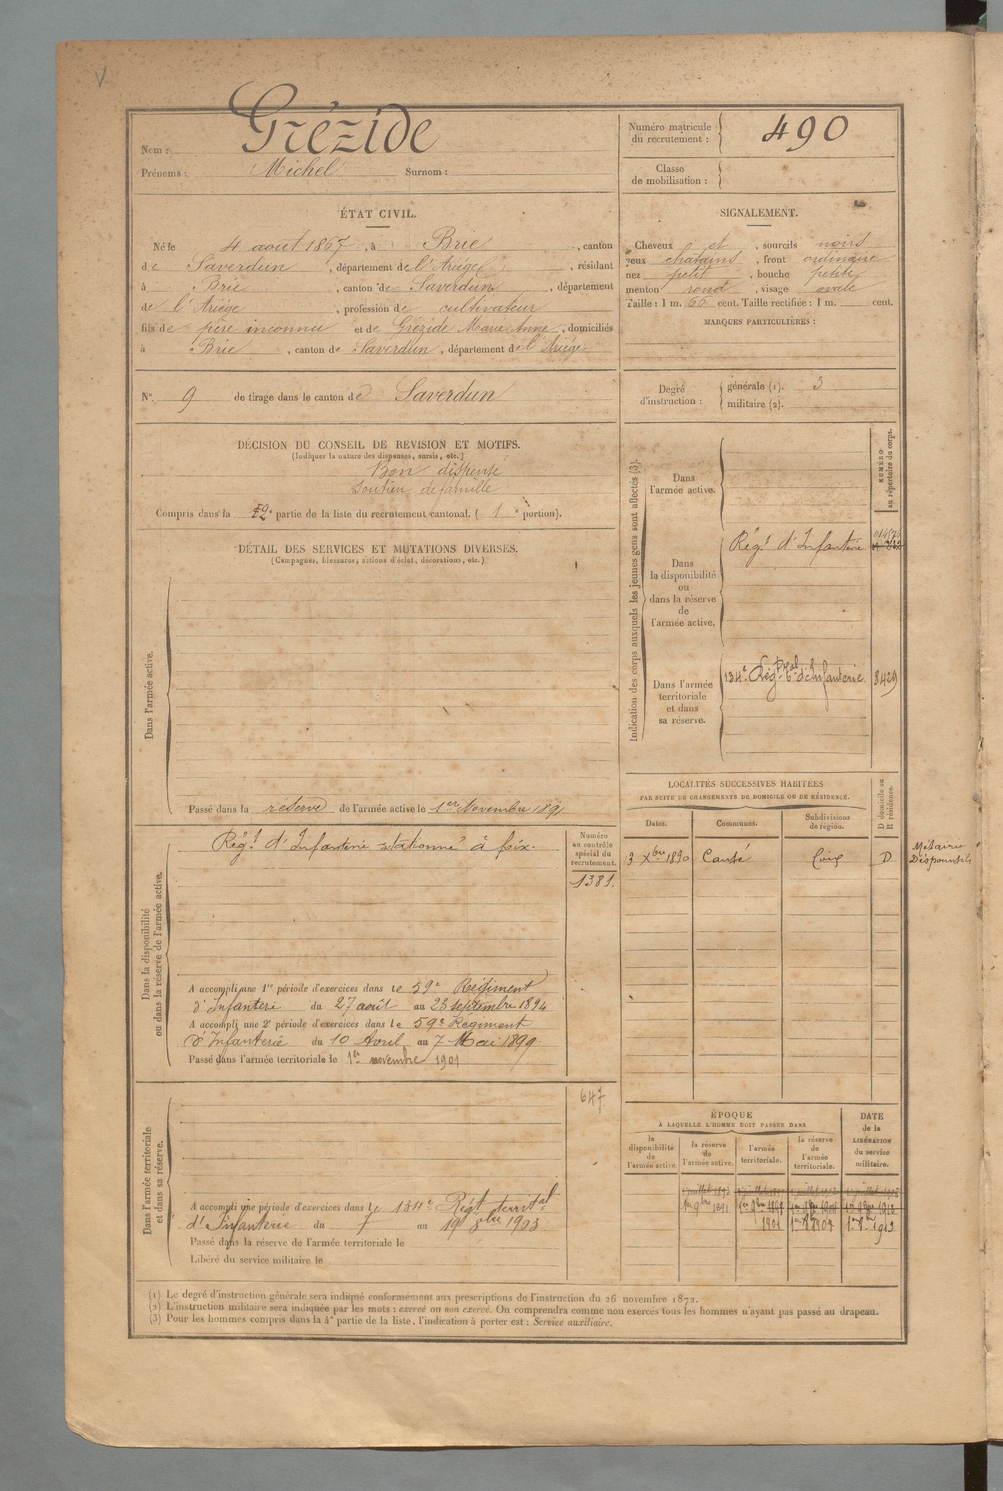 Nom : Grézide
Prénoms : Michel Surnom :
Numéro matricule du recrutement : 490
Classe de mobilisation :
ÉTAT CIVIL.
Né le 4 août 1867, à Brie, canton
de Saverdun, département de l'Ariège, résidant
à Brie, canton de Saverdun, département
de l'Ariège, profession de cultivateur
fils de père inconnu et de Grézide Marie Anne, domiciliés
à Brie, canton de Saverdun, département de l'Ariège
SIGNALEMENT.
Cheveux et, sourcils noirs
yeux chatains, front ordinaire
nez petit, bouche petite
menton rond, visage ovale
Taille : 1 m. 65 cent. Taille rectifiée : 1 m. cent.
MARQUES PARTICULIÈRES :
N° 9 de tirage dans le canton de Saverdun
Degré d'instruction : générale (1). 3
militaire (2).
DÉCISION DU CONSEIL DE REVISION ET MOTIFS.
(Indiquer la nature des dispenses, sursis, etc.)
Bon dispensé
soutien de famille
Compris dans la partie de la liste du recrutement cantonal. (1e portion).
DÉTAIL DES SERVICES ET MUTATIONS DIVERSES.
(Campagnes, blessures, actions d'éclat, décorations, etc.)
Dans l'armée active.
Passé dans la réserve de l'armée active le 1er Novembre 1891
Dans la disponibilité ou dans la réserve de l'armée active.
Rég.t d'Infanterie stationné à foix.
Numéro au contrôle spécial du recrutement.
1381.
A accompli une 1re période d'exercices dans le 59e Régiment
d'Infanterie du 27 août au 23 septembre 1894
A accompli une 2e période d'exercices dans le 59e Régiment
d'Infanterie du 10 Avril au 7 Mai 1899
Passé dans l'armée territoriale le 1er novembre 1901
Dans l'armée territoriale et dans sa réserve.
647
A accompli une période d'exercices dans le 134e Régt territal
d'Infanterie du 7 au 19 8bre 1903
Passé dans la réserve de l'armée territoriale le
Libéré du service militaire le
Indication des corps auxquels les jeunes gens sont affectés (3).
NUMÉRO au répertoire du corps.
Dans l'armée active.
Dans la disponibilité ou dans la réserve de l'armée active.
Rég.t d'Infanterie
Dans l'armée territoriale et dans sa réserve.
134e Rég.t d'Infanterie 8429
LOCALITÉS SUCCESSIVES HABITÉES
PAR SUITE DE CHANGEMENTS DE DOMICILE OU DE RÉSIDENCE.
D domicile ou R résidence.
Dates. Communes. Subdivisions de région.
3 Xbre 1890 Canté Foix D
Métairie
ÉPOQUE
À LAQUELLE L'HOMME DOIT PASSER DANS
DATE de la LIBÉRATION du service militaire.
la disponibilité de l'armée active.
la réserve de l'armée active.
l'armée territoriale.
la réserve de l'armée territoriale.
1er 9bre 1891
1901
1er 9bre 1907
1er 9bre 1913
(1) Le degré d'instruction générale sera indiqué conformément aux prescriptions de l'instruction du 26 novembre 1872.
(2) L'instruction militaire sera indiquée par les mots : exercé ou non exercé. On comprendra comme non exercés tous les hommes n'ayant pas passé au drapeau.
(3) Pour les hommes compris dans la 4e partie de la liste, l'indication à porter est : Service auxiliaire.